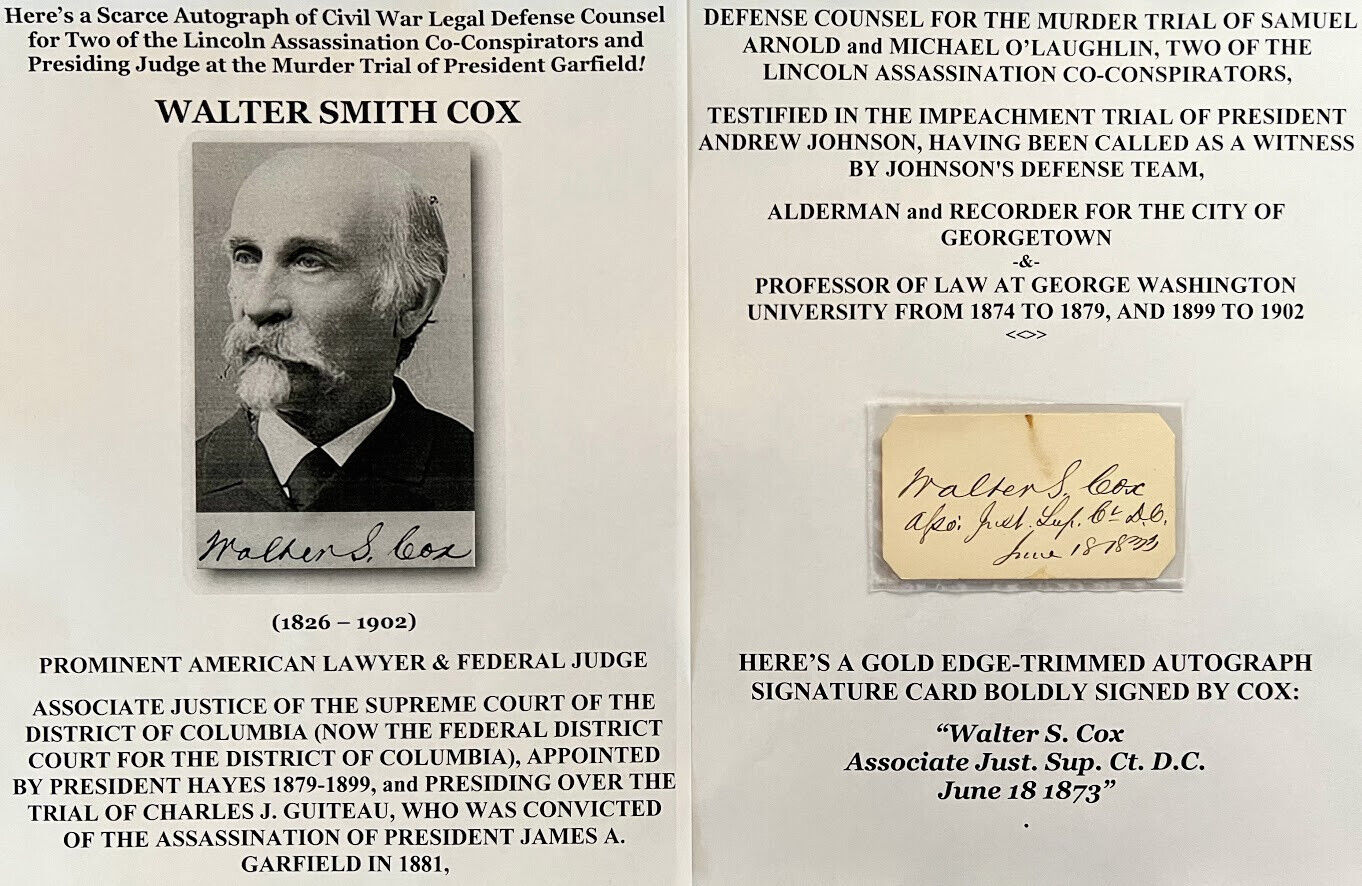 Here's a Scarce Autograph of Civil War Legal Defense Counsel
for Two of the Lincoln Assassination Co-Conspirators and
Presiding Judge at the Murder Trial of President Garfield!
WALTER SMITH COX
Walter S. Cox
(1826 – 1902)
PROMINENT AMERICAN LAWYER & FEDERAL JUDGE
ASSOCIATE JUSTICE OF THE SUPREME COURT OF THE
DISTRICT OF COLUMBIA (NOW THE FEDERAL DISTRICT
COURT FOR THE DISTRICT OF COLUMBIA), APPOINTED
BY PRESIDENT HAYES 1879-1899, and PRESIDING OVER THE
TRIAL OF CHARLES J. GUITEAU, WHO WAS CONVICTED
OF THE ASSASSINATION OF PRESIDENT JAMES A.
GARFIELD IN 1881,
DEFENSE COUNSEL FOR THE MURDER TRIAL OF SAMUEL
ARNOLD and MICHAEL O'LAUGHLIN, TWO OF THE
LINCOLN ASSASSINATION CO-CONSPIRATORS,
TESTIFIED IN THE IMPEACHMENT TRIAL OF PRESIDENT
ANDREW JOHNSON, HAVING BEEN CALLED AS A WITNESS
BY JOHNSON'S DEFENSE TEAM,
ALDERMAN and RECORDER FOR THE CITY OF
GEORGETOWN
-&-
PROFESSOR OF LAW AT GEORGE WASHINGTON
UNIVERSITY FROM 1874 TO 1879, AND 1899 TO 1902
<<>>
Walter S. Cox
Asso. Just. Sup. Ct D.C.
June 18
HERE'S A GOLD EDGE-TRIMMED AUTOGRAPH
SIGNATURE CARD BOLDLY SIGNED BY COX:
"Walter S. Cox
Associate Just. Sup. Ct. D.C.
June 18 1873"
.